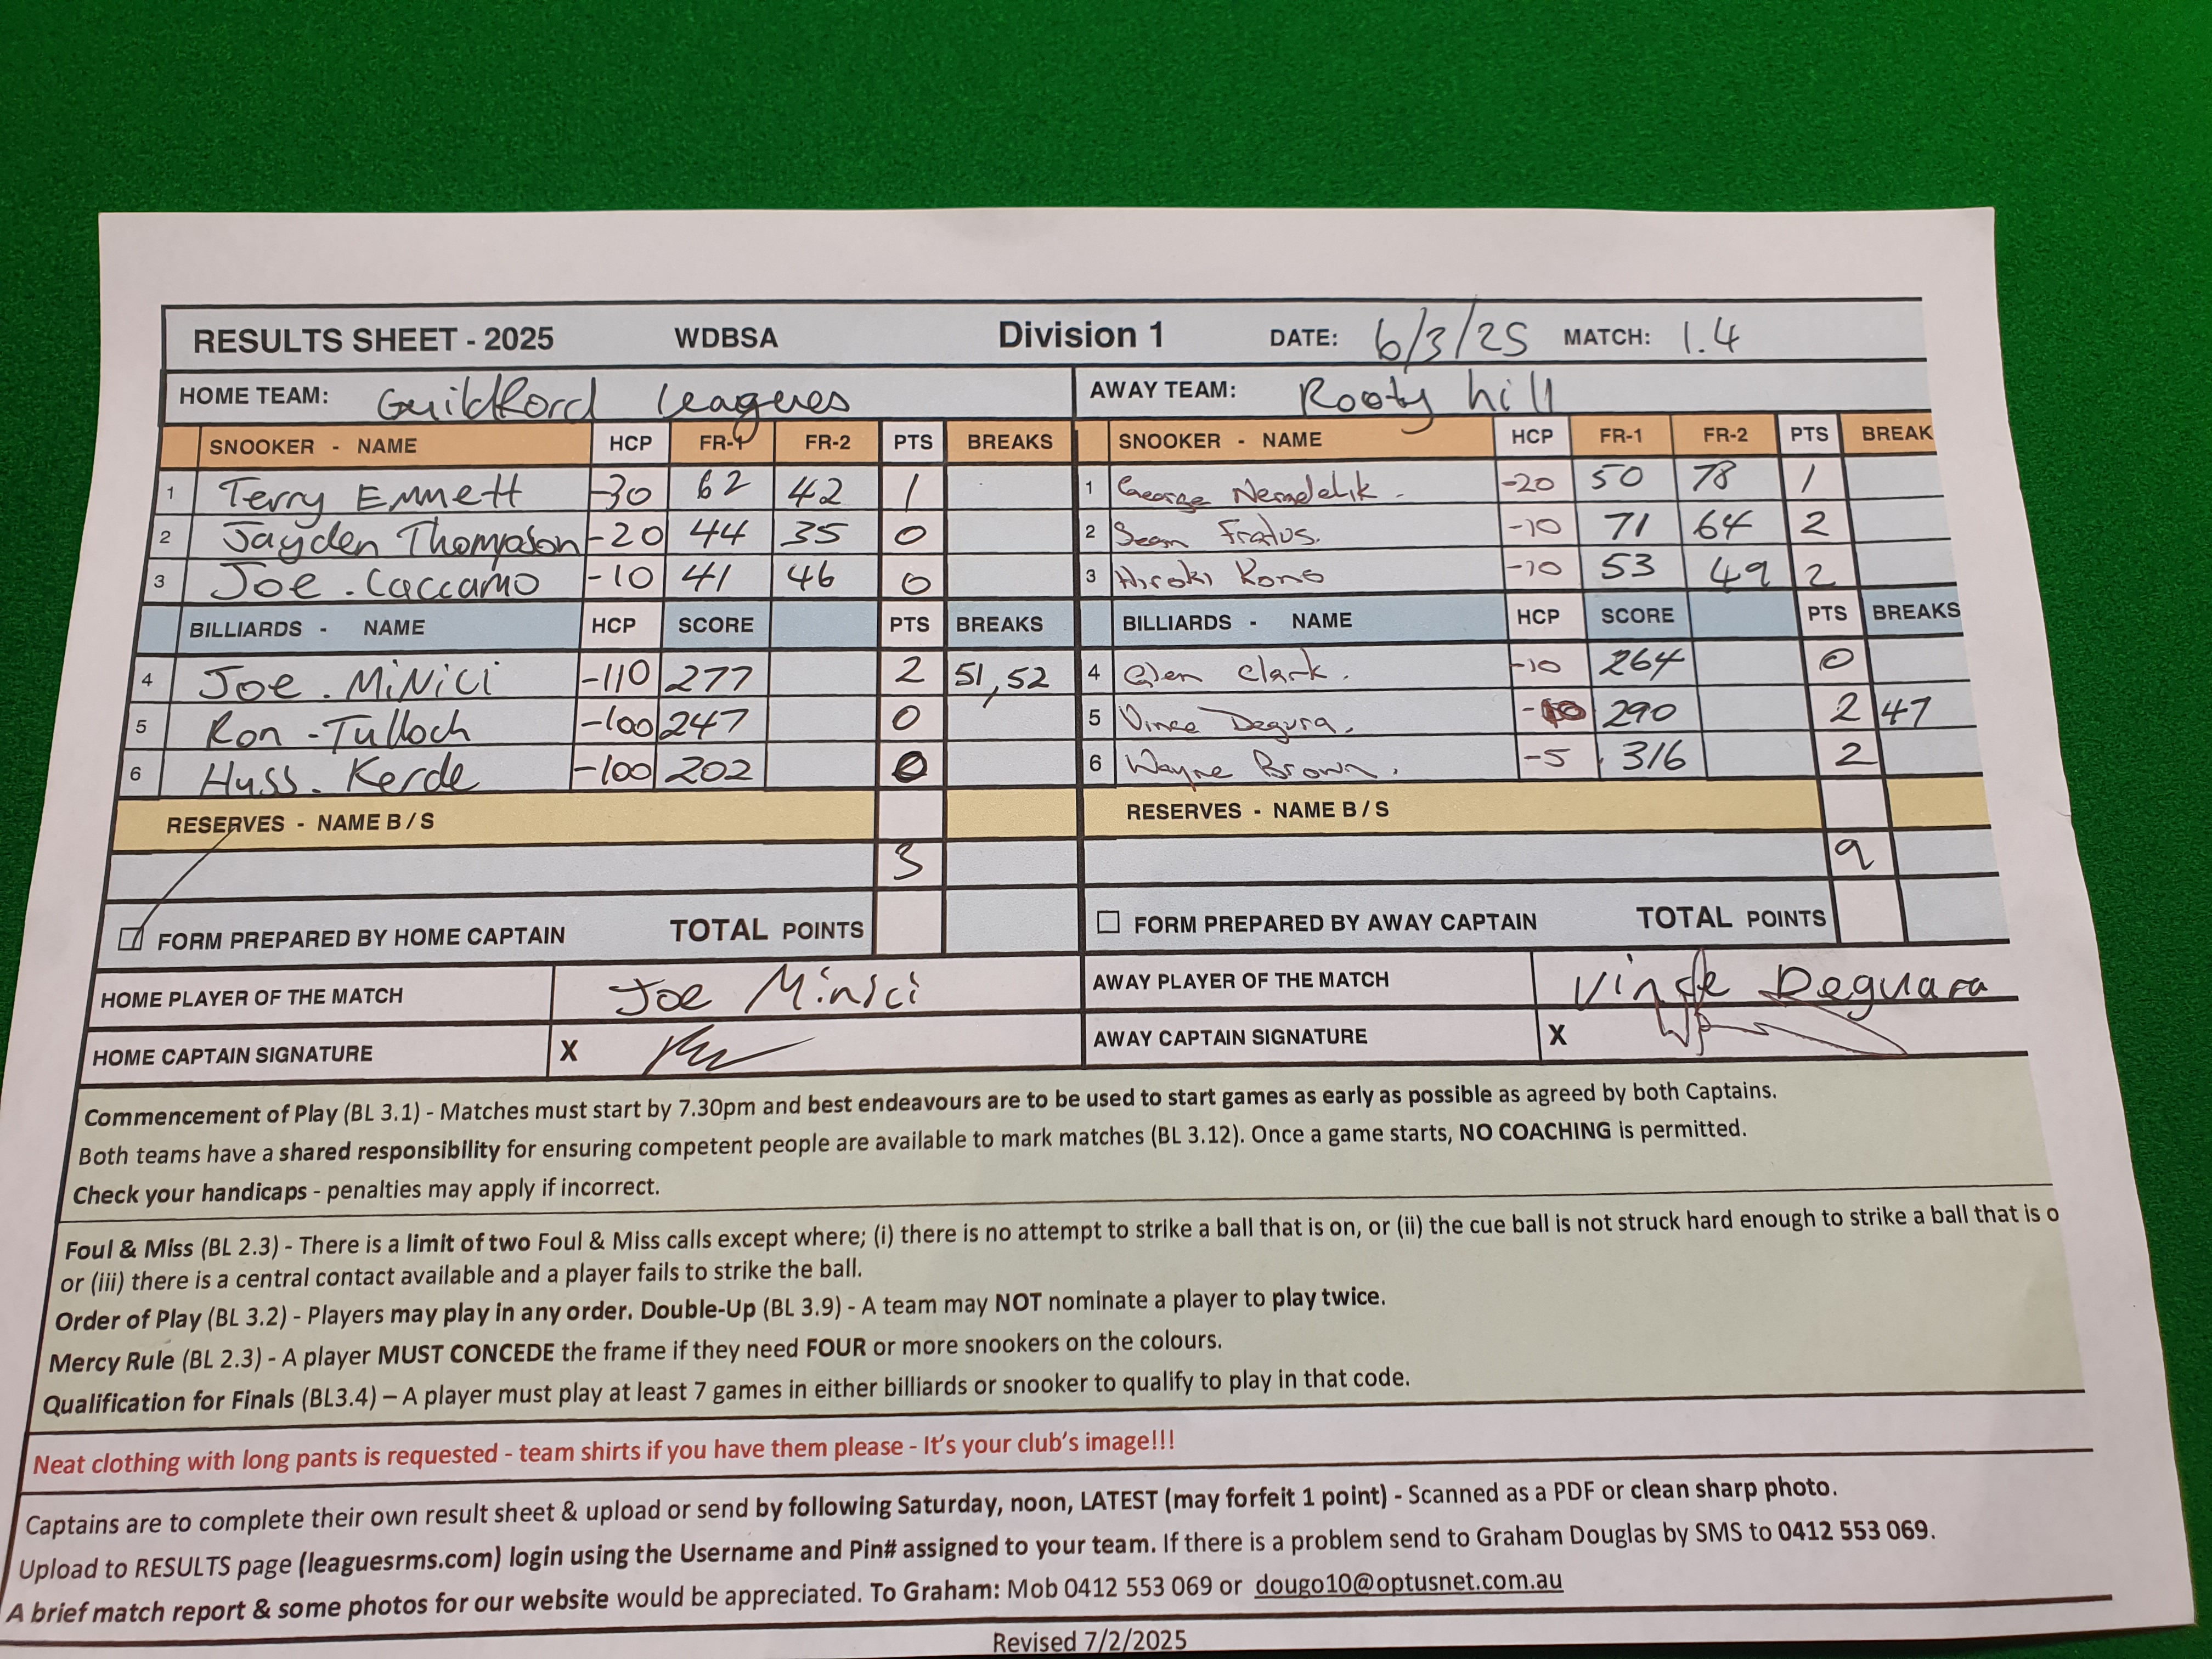 RESULTS SHEET - 2025 WDBSA Division 1 DATE: 6/3/25 MATCH: 1.4
HOME TEAM: Guildford Leagues AWAY TEAM: Rooty hill
SNOOKER - NAME HCP FR-1 FR-2 PTS BREAKS SNOOKER - NAME HCP FR-1 FR-2 PTS BREAK
1 Terry Emmett -30 62 42 1 1 George Nemdelik -20 50 78 1
2 Jayden Thompson -20 44 35 0 2 Sean Fratus. -10 71 64 2
3 Joe . Caccamo -10 41 46 0 3 Hiroki Kono -10 53 49 2
BILLIARDS - NAME HCP SCORE PTS BREAKS BILLIARDS - NAME HCP SCORE PTS BREAKS
4 Joe . MiNici -110 277 2 51, 52 4 Glen Clark. -10 264 0
5 Ron - Tulloch -100 247 0 5 Vince Degura. 290 2 47
6 Huss. Kerde -100 202 0 6 Wayne Brown. -5 316 2
RESERVES - NAME B / S RESERVES - NAME B / S
3 9
FORM PREPARED BY HOME CAPTAIN TOTAL POINTS FORM PREPARED BY AWAY CAPTAIN TOTAL POINTS
HOME PLAYER OF THE MATCH Joe Minici AWAY PLAYER OF THE MATCH Vince Deguara
HOME CAPTAIN SIGNATURE X AWAY CAPTAIN SIGNATURE X
Commencement of Play (BL 3.1) - Matches must start by 7.30pm and best endeavours are to be used to start games as early as possible as agreed by both Captains.
Both teams have a shared responsibility for ensuring competent people are available to mark matches (BL 3.12). Once a game starts, NO COACHING is permitted.
Check your handicaps - penalties may apply if incorrect.
Foul & Miss (BL 2.3) - There is a limit of two Foul & Miss calls except where; (i) there is no attempt to strike a ball that is on, or (ii) the cue ball is not struck hard enough to strike a ball that is o
or (iii) there is a central contact available and a player fails to strike the ball.
Order of Play (BL 3.2) - Players may play in any order. Double-Up (BL 3.9) - A team may NOT nominate a player to play twice.
Mercy Rule (BL 2.3) - A player MUST CONCEDE the frame if they need FOUR or more snookers on the colours.
Qualification for Finals (BL3.4) – A player must play at least 7 games in either billiards or snooker to qualify to play in that code.
Neat clothing with long pants is requested - team shirts if you have them please - It's your club's image!!!
Captains are to complete their own result sheet & upload or send by following Saturday, noon, LATEST (may forfeit 1 point) - Scanned as a PDF or clean sharp photo.
Upload to RESULTS page (leaguesrms.com) login using the Username and Pin# assigned to your team. If there is a problem send to Graham Douglas by SMS to 0412 553 069.
A brief match report & some photos for our website would be appreciated. To Graham: Mob 0412 553 069 or dougo10@optusnet.com.au
Revised 7/2/2025